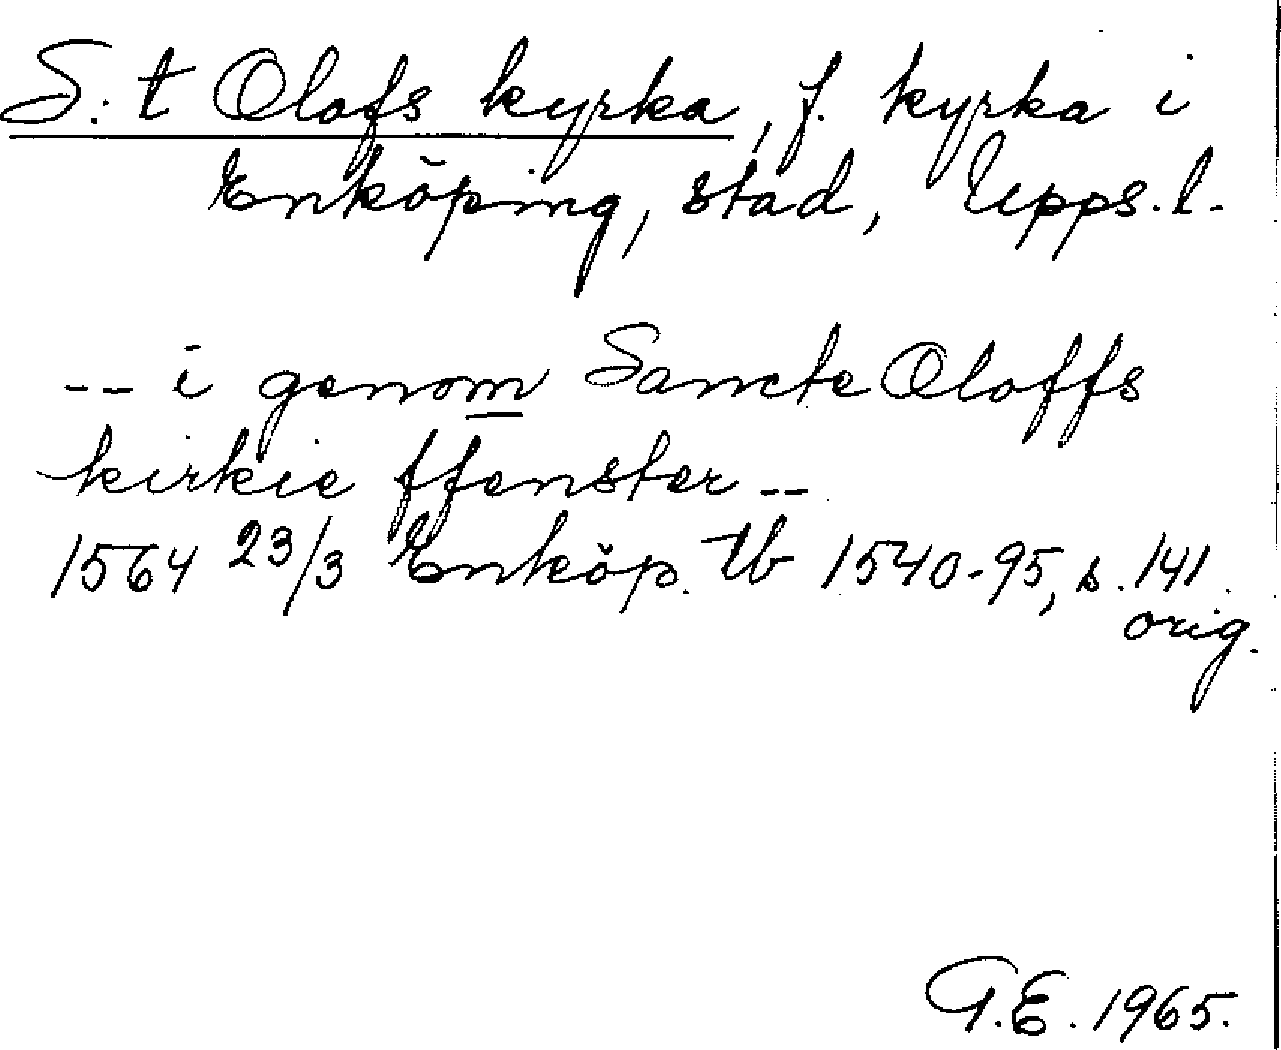 S:t Olofs kyrka, f. kyrka i
Enköping, stad, Upps. l.
-- i genom Sancte Oloffs
kirkie ffenster --
1564 23/3 Enköp. tb 1540-95, s. 141.
orig.
G.E. 1965.